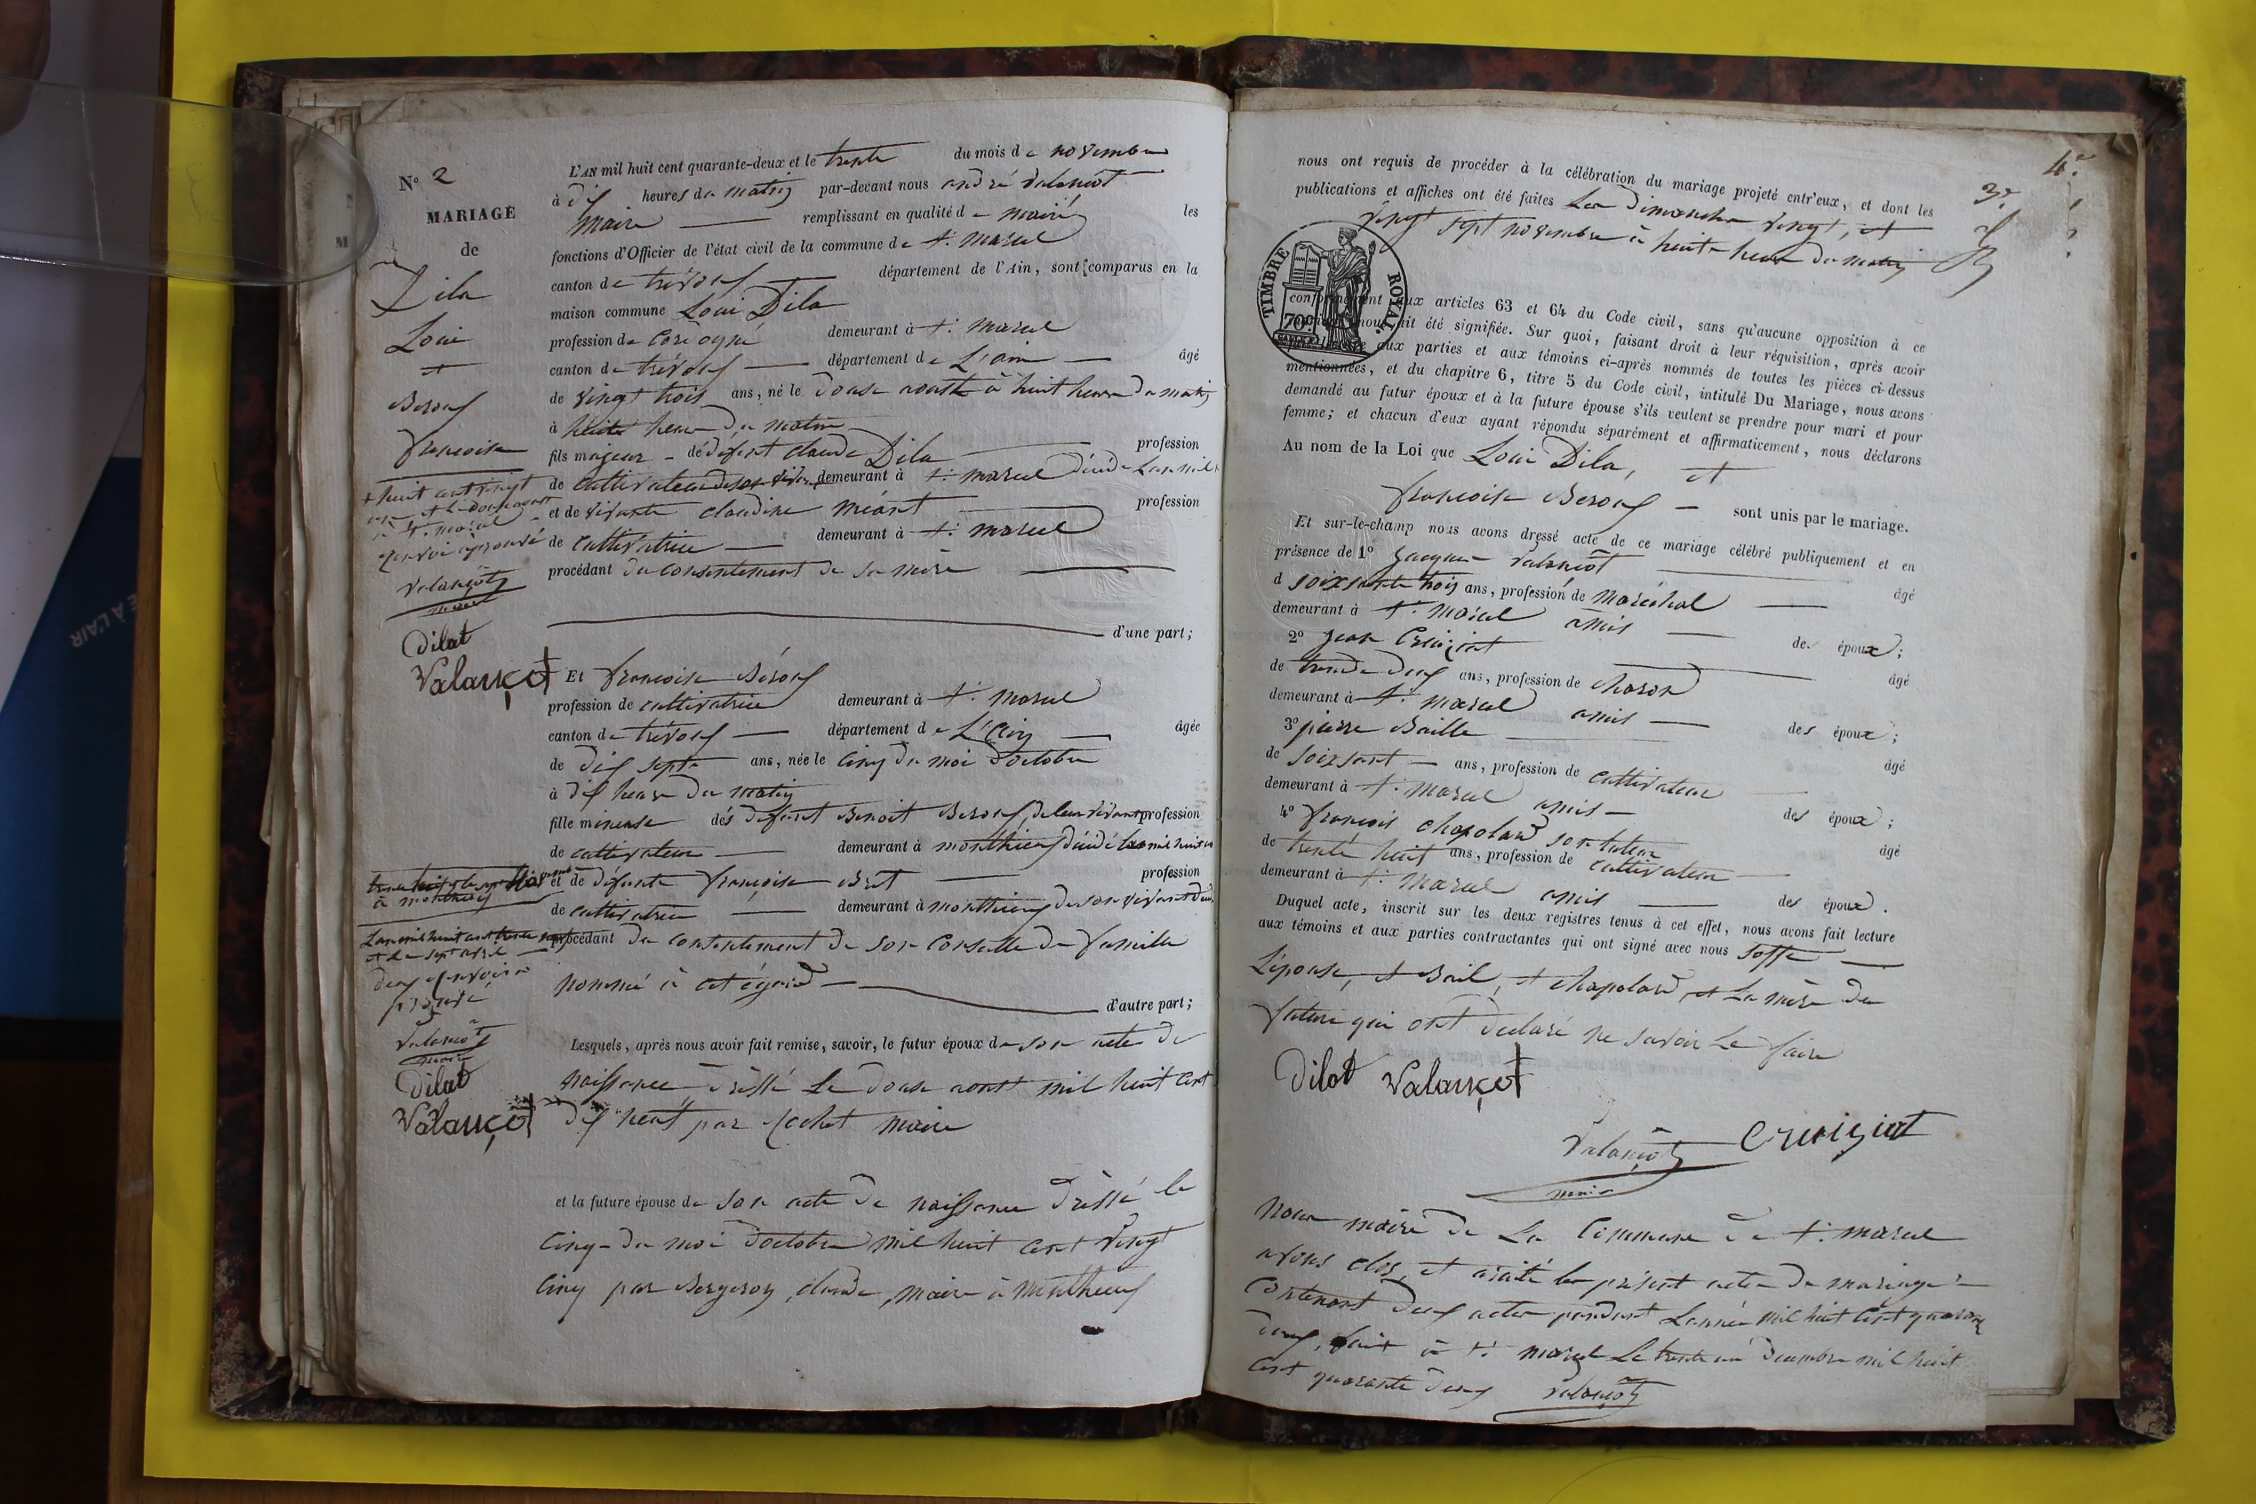 N° 2
MARIAGE
de
Dila
Loui
et
Berouf
francoise
L'AN mil huit cent quarante-deux et le trente du mois de novembre
à dix heures du matin par-devant nous andré Valancot
maire remplissant en qualité de maire les
fonctions d'Officier de l'état civil de la commune de St. marcel
canton de trévouf département de l'Ain, sont comparus en la
maison commune Loui Dila
profession de demeurant à St. marcel
canton de trévouf département de L'ain âgé
de vingt trois ans, né le douse aoust à huit heure du matin
à heure du matin
fils majeur de défunt claude Dila profession
de cultivateur de son vivant demeurant à St. marcel décédé L'an mil
+ huit cent vingt
et de vivante claudine méant profession
de cultivatrice demeurant à St. marcel
procédant du consentement de sa mère
renvoi aprouvé
Valançot
maire
Dilat
Valançot
d'une part;
Et francoise Bérouf
profession de cultivatrice demeurant à St. marcel
canton de trévouf département de L'Ain âgée
de dix septe ans, née le cinq du moi d'octobre
à dix heure du matin
fille meneuse dés defunt Benoit Berouf, de leur vivant profession
de cultivateur demeurant à monthieuf décédé L'an mil huit cent
à monthieuf
et de défunte françoise Bret profession
de cultivatrice demeurant à monthieuf de son vivant
L'an mil huit cent trente
et le sept avril
procédant du consentement de son conseille de famille
nommé à cet égard
d'autre part;
deuf renvoi
Valancot
maire
Dilat
Valançot
Lesquels, après nous avoir fait remise, savoir, le futur époux de son acte de
naissance dréssé Le douse aoust mil huit cent
dix neuf par cochet maire
et la future épouse de son acte de naissance dréssé le
cinq du moi d'octobre mil huit cent vingt
cinq par Bergeron claude, maire à monthieuf
4e.
3e
nous ont requis de procéder à la célébration du mariage projeté entr'eux, et dont les
publications et affiches ont été faites Les dimanche vingt, et
vingt sept novembre à huit heure du matin
TIMBRE ROYAL.
70c
conformément aux articles 63 et 64 du Code civil, sans qu'aucune opposition à ce
mariage nous ait été signifiée. Sur quoi, faisant droit à leur réquisition, après avoir
aux parties et aux témoins ci-après nommés de toutes les pièces ci-dessus
mentionnées, et du chapitre 6, titre 5 du Code civil, intitulé Du Mariage, nous avons
demandé au futur époux et à la future épouse s'ils veulent se prendre pour mari et pour
femme; et chacun d'eux ayant répondu séparément et affirmativement, nous déclarons
Au nom de la Loi que Loui Dila, et
francoise Berouf sont unis par le mariage.
Et sur-le-champ nous avons dressé acte de ce mariage célébré publiquement et en
présence de 1° Jacque Valancot âgé
d soixsante trois ans, profession de maréchal
demeurant à St. marcel amis des époux;
2° jean Croizint âgé
de trende deuf ans, profession de charon
demeurant à St. marcel amis des époux;
3° pierre Baille âgé
de soixsant ans, profession de cultivateur
demeurant à St. marcel amis des époux;
4° francois chapolard son tuteur âgé
de trente huit ans, profession de cultivateur
demeurant à St. marcel amis des époux.
Duquel acte, inscrit sur les deux registres tenus à cet effet, nous avons fait lecture
aux témoins et aux parties contractantes qui ont signé avec nous soffe
L'épouse, et Bail, et chapolard, et La mère du
future qui ont declaré ne savoir Le faire
Dilat Valançot
Valançot Croizint
maire
nous maire de La commune de St. marcel
avons clos, et arété les présent acte de mariage
contenant deuf acte pendant L'année mil huit cent quarante
deuf, fait à St. marcel Le trente un décembre mil huit
cent quarante deuf Valançot